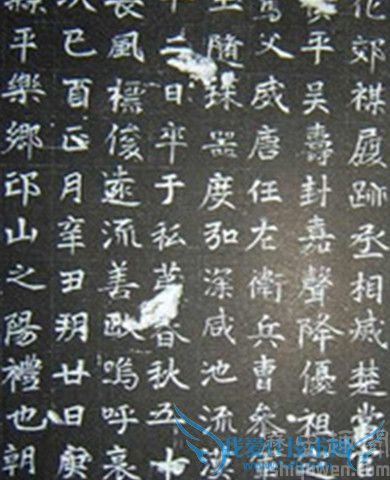 郊禖履跡丞相威楚
平吳壽封嘉聲降優祖
父威唐任左衛兵曹叅
隨珠器度弘深咸池流漢
十二日卒于私苐春秋五十
風標俊遠流善政嗚呼哀
次己酉正月辛丑朔廿日庚
縣平樂鄉邙山之陽禮也朝